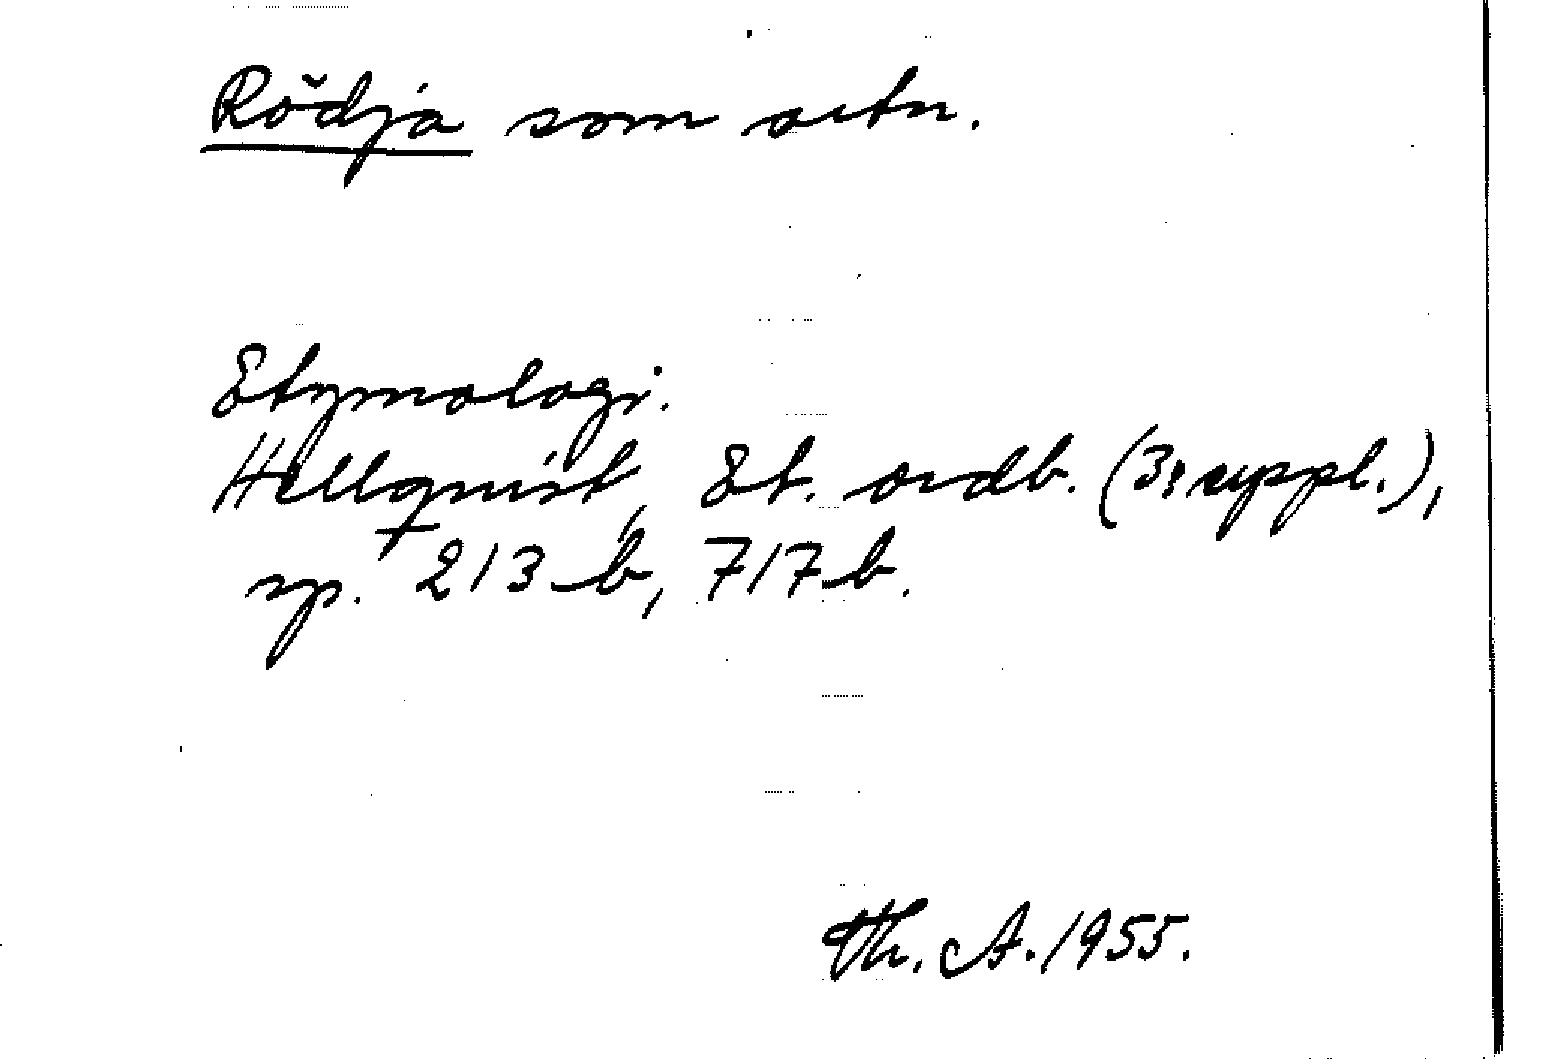 Rödja som ortn.
Etymologi.
Hellquist, Et. ordb. (3; suppl.),
sp. 213 b, 717 b.
Th. A. 1955.